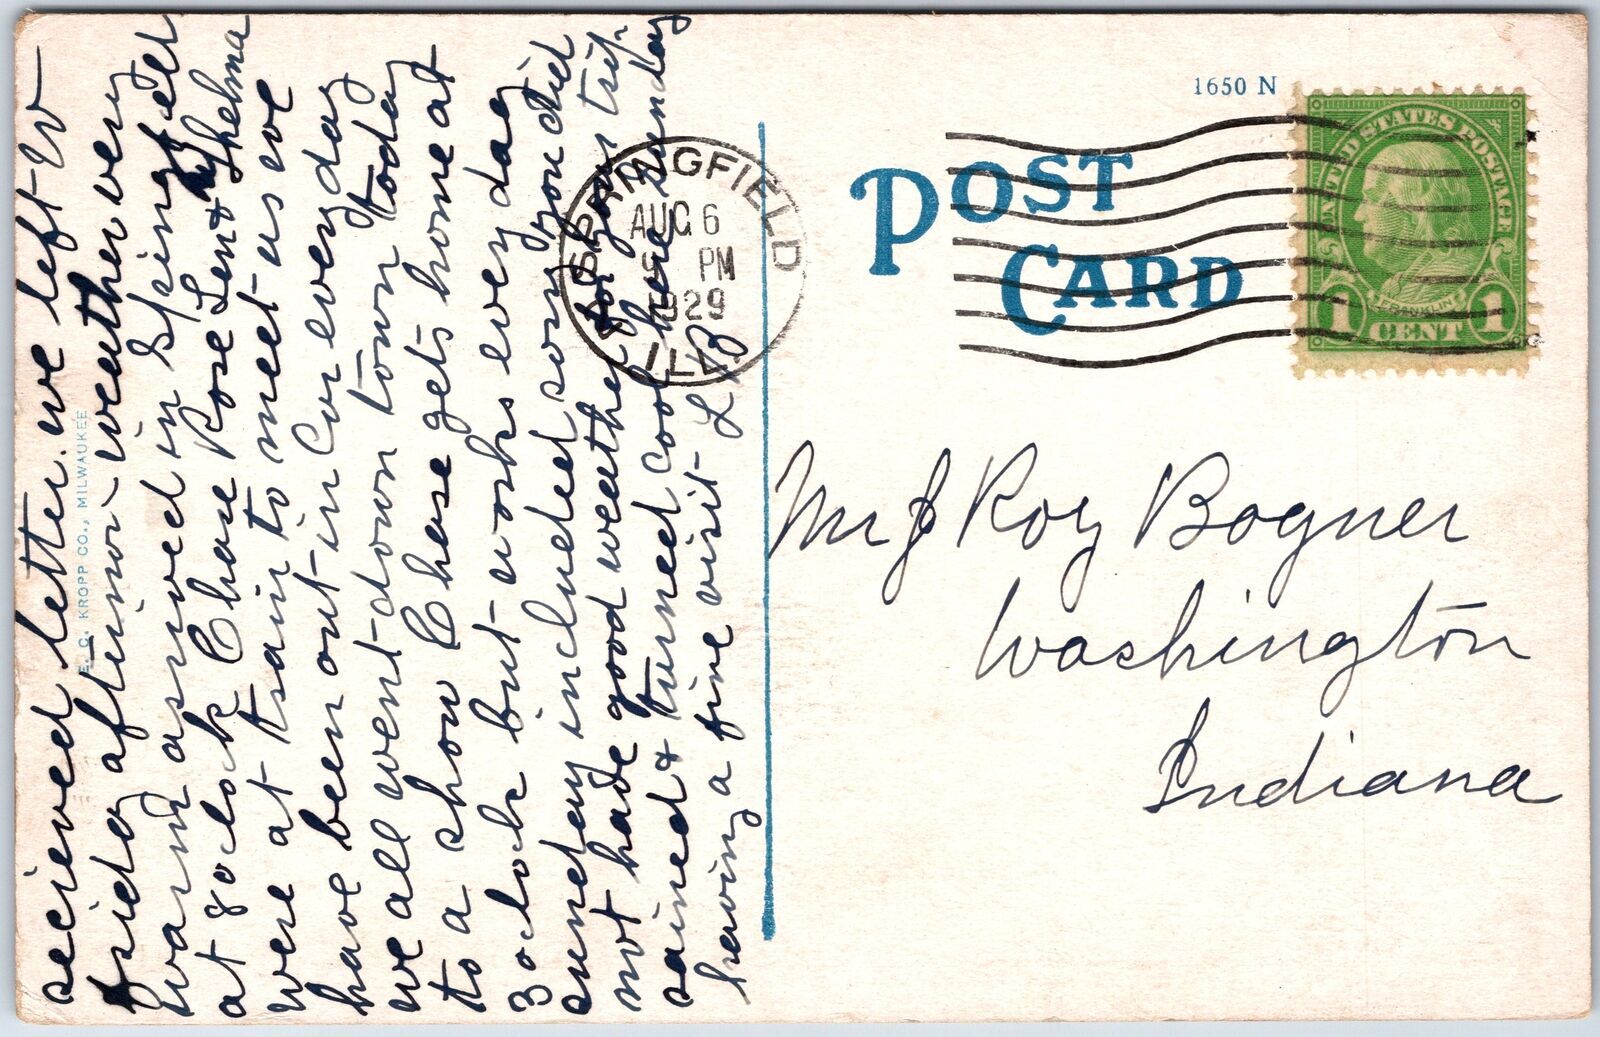 recieved letter. we left W
friday afternoon - weather very
warm arrived in Springfield
at 9 oclock Chase Rose Len & Thelma
were at train to meet us we
have been out in Car every day
we all went down town today
to a show Chase gets home at
3 oclock but works every day
sunday included sorry you did
not have good weather for your trip.
rained & turned cool here sunday
having a fine visit - L B
E. C. KROPP CO., MILWAUKEE
SPRINGFIELD
AUG 6
PM
1929
ILL.
1650 N
POST
CARD
UNITED STATES POSTAGE
FRANKLIN
1 CENT 1
Mr & Roy Bogner
Washington
Indiana